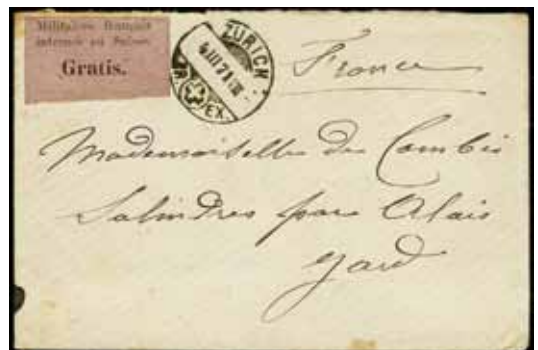 Militaires français
internés en Suisse.
Gratis.
ZÜRICH
4 III 71
BR. EX.
France
Mademoiselle des Combis
Salindres par Alais
Gard